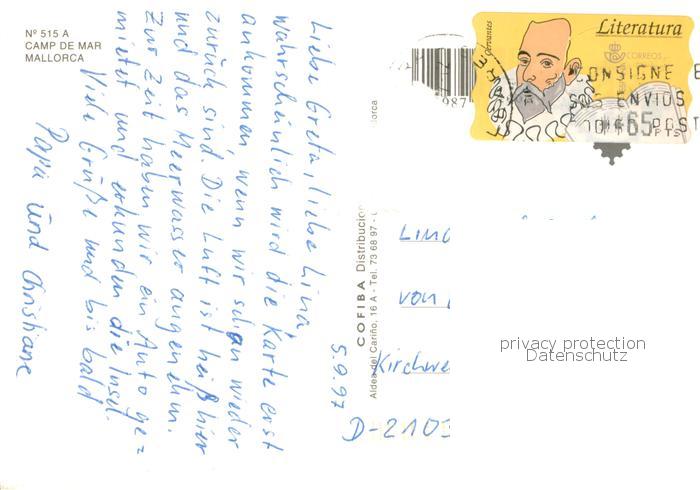 Nº 515 A
CAMP DE MAR
MALLORCA
5.9.97
Liebe Greta, liebe Lina,
wahrscheinlich wird die Karte erst
ankommen, wenn wir schon wieder
zurück sind. Die Luft ist heiß hier
und das Meerwasser angenehm.
Zur Zeit haben wir ein Auto ge=
mietet und erkunden die Insel.
Viele Grüße und bis bald
Papa und Christiane
COFIBA Distribucion
Aldea del Cariño, 16 A - Tel. 73 68 97 -
lorca
987
Cervantes
Literatura
CORREOS
ONSIGNE
ENVIOS
65 PTS
POST
von
Kirchwe
D-2103
privacy protection
Datenschutz